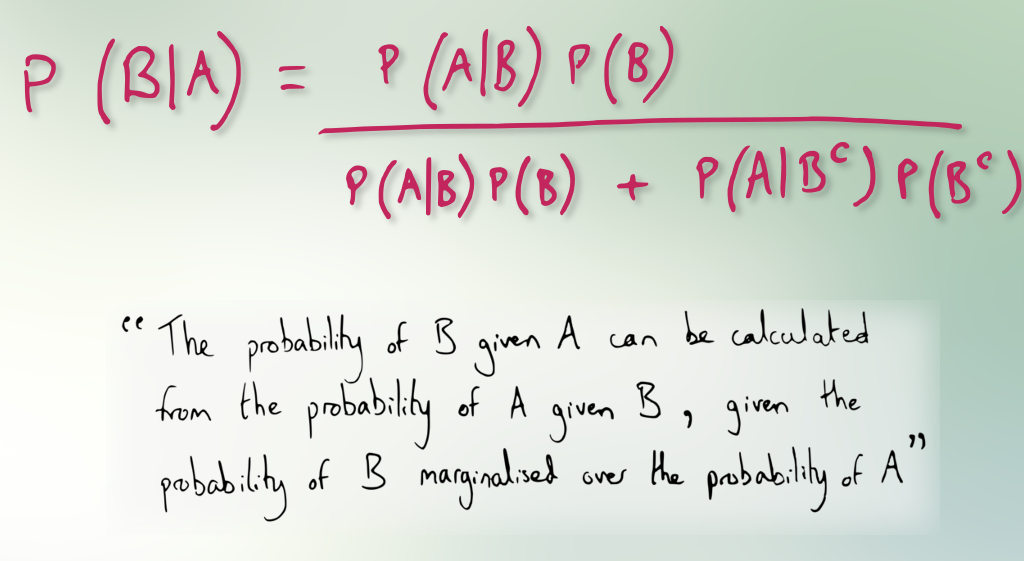 P (B|A) = P (A|B) P(B)
P(A|B) P(B) + P(A|Bᶜ) P(Bᶜ)
“ The probability of B given A can be calculated
from the probability of A given B , given the
probability of B marginalised over the probability of A ”